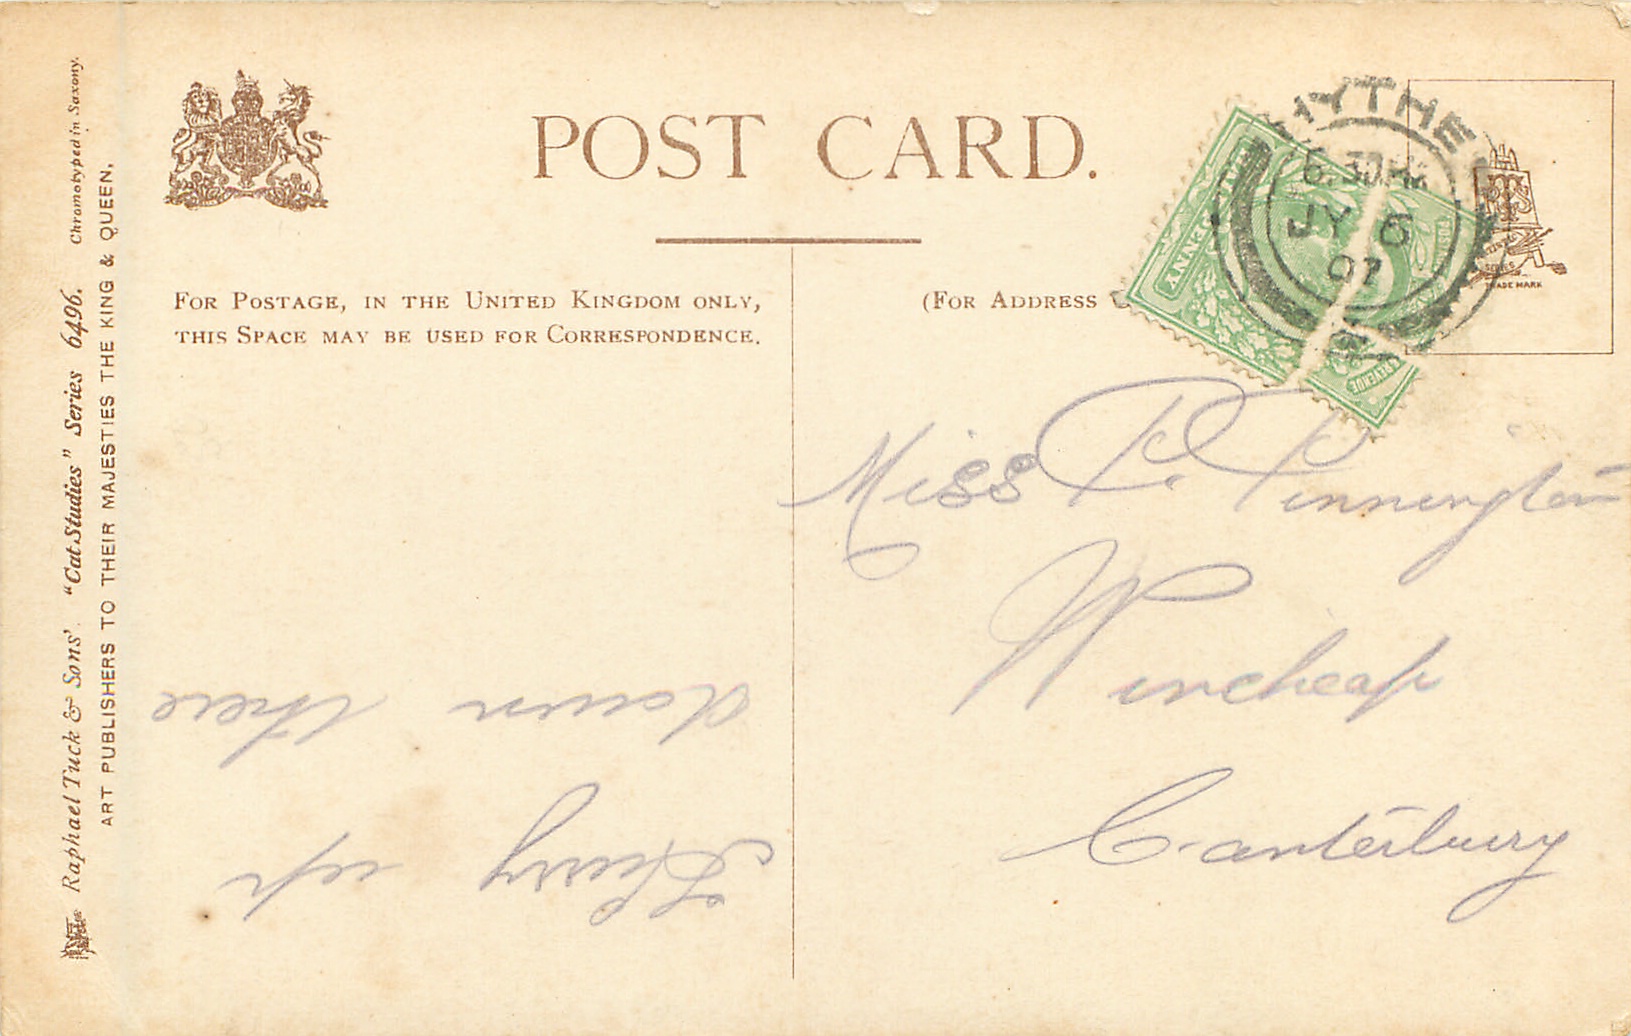 POST CARD.
FOR POSTAGE, IN THE UNITED KINGDOM ONLY,
THIS SPACE MAY BE USED FOR CORRESPONDENCE.
(FOR ADDRESS
HYTHE
6.30 PM
JY 6
07
HALFPENNY
POSTAGE
REVENUE
RTS
SERIES
TRADE MARK
Miss P. Pennington
Wincheap
Canterbury
Hurry up
down there
Raphael Tuck & Sons' "Cat Studies" Series 6496. Chromotyped in Saxony.
ART PUBLISHERS TO THEIR MAJESTIES THE KING & QUEEN.